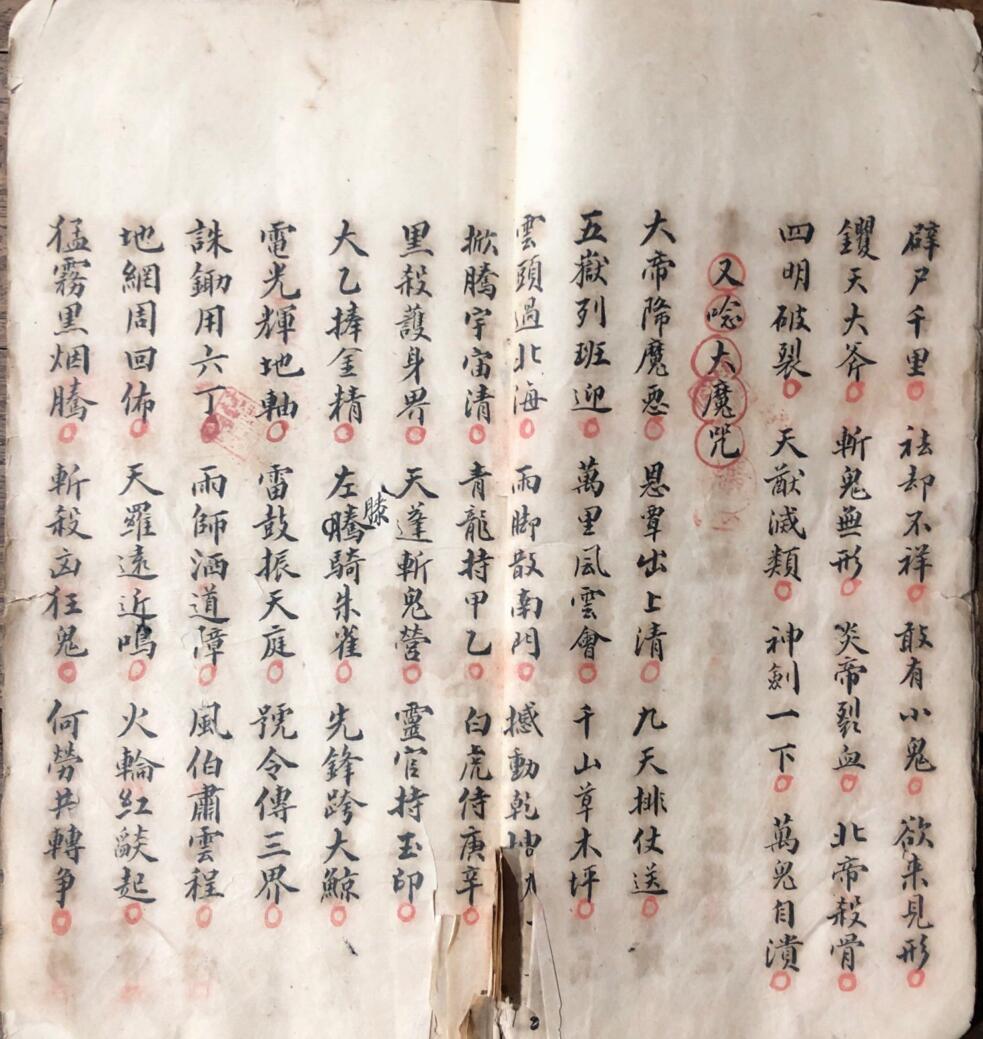 辟尸千里。祛却不祥。敢有小鬼。欲来見形。
钁天大斧。斬鬼無形。炎帝裂血。北帝殺骨。
四明破裂。天猷滅類。神劍一下。萬鬼自潰。
又唸大魔咒
大帝降魔惡。恩覃出上清。九天排仗送。
五嶽列班迎。萬里風雲會。千山草木坪。
雲頭過北海。雨脚散南門。撼動乾坤
掀騰宇宙清。青龍持甲乙。白虎侍庚辛。
黑殺護身界。天蓬斬鬼营。靈官持玉印。
大乙捧金精。左騰膝騎朱雀。先鋒跨大鯨。
電光輝地軸。雷鼓振天庭。號令傳三界。
誅鋤用六丁。雨師洒道障。風伯肅雲程。
地網周回佈。天羅遠近鳴。火輪紅燄起。
猛霧黑烟騰。斬殺凶狂鬼。何勞共轉争。